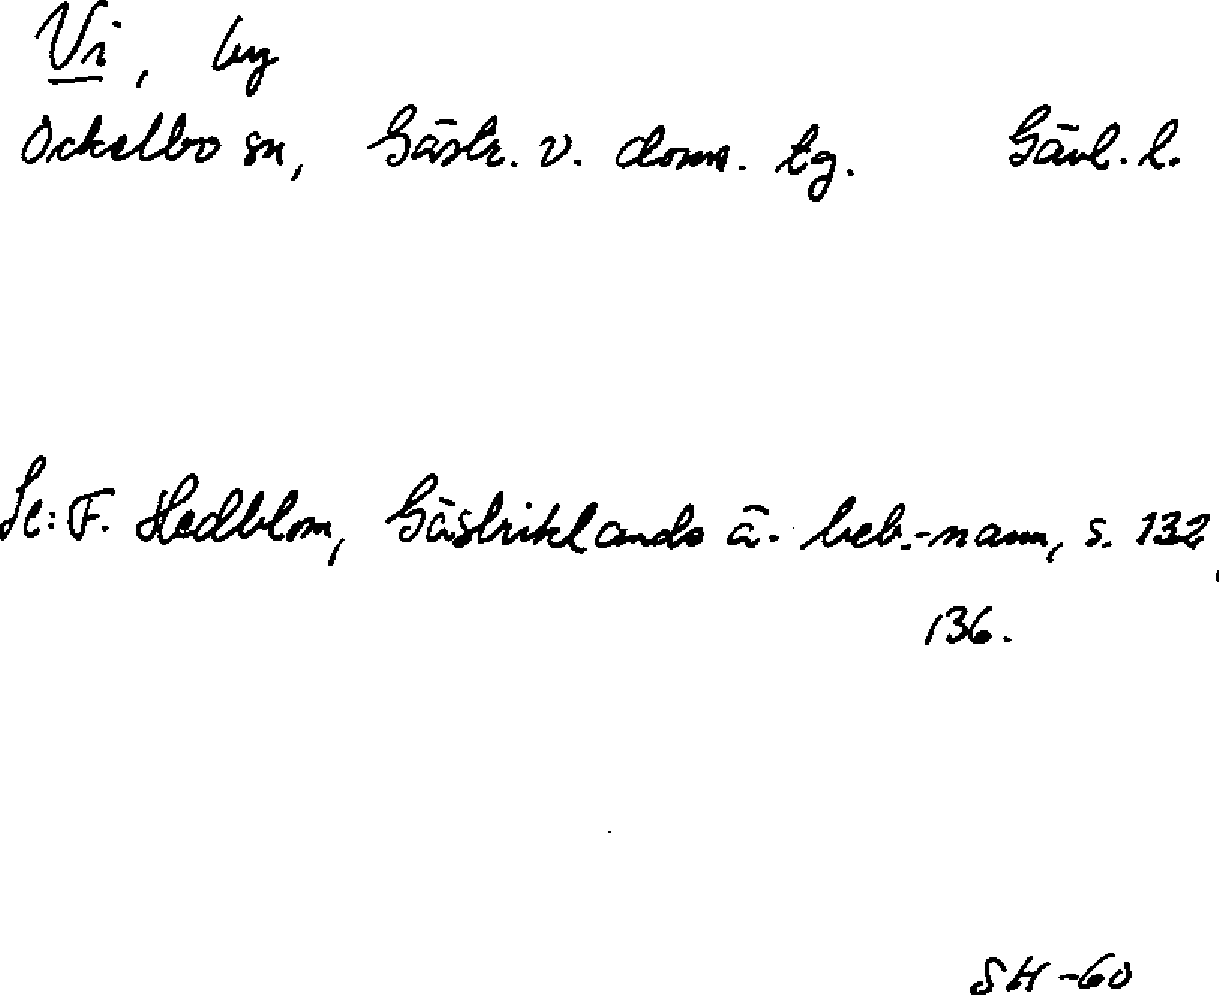 Vi, by
Ockelbo sn, Gästr. v. doms. tg. Gävl. l.
Se: F. Hedblom, Gästriklands ä. beb.-namn, s. 132,
136.
SH -60